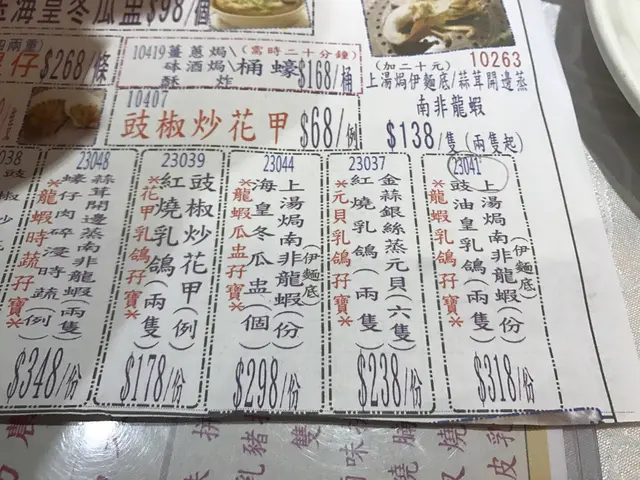 海皇冬瓜盅$98/個
$268/條
10419 薑蔥焗\(需時二十分鐘)
砵酒焗\桶蠔$168/桶
酥炸
10407
豉椒炒花甲$68/例
10263
(加二十元)
上湯焗伊麵底/蒜茸開邊蒸
南非龍蝦
$138/隻(兩隻起)
23048
蒜茸開邊蒸南非龍蝦(兩隻)
蠔仔肉碎浸時蔬(例)
*龍蝦時蔬孖寶*
$348/份
23039
豉椒炒花甲(例)
紅燒乳鴿(兩隻)
*花甲乳鴿孖寶*
$178/份
23044
上湯焗南非龍蝦(份)
(伊麵底)
海皇冬瓜盅(個)
*龍蝦瓜盅孖寶*
$298/份
23037
金蒜銀絲蒸元貝(六隻)
紅燒乳鴿(兩隻)
*元貝乳鴿孖寶*
$238/份
23041
上湯焗南非龍蝦(份)
(伊麵底)
豉油皇乳鴿(兩隻)
*龍蝦乳鴿孖寶*
$318/份